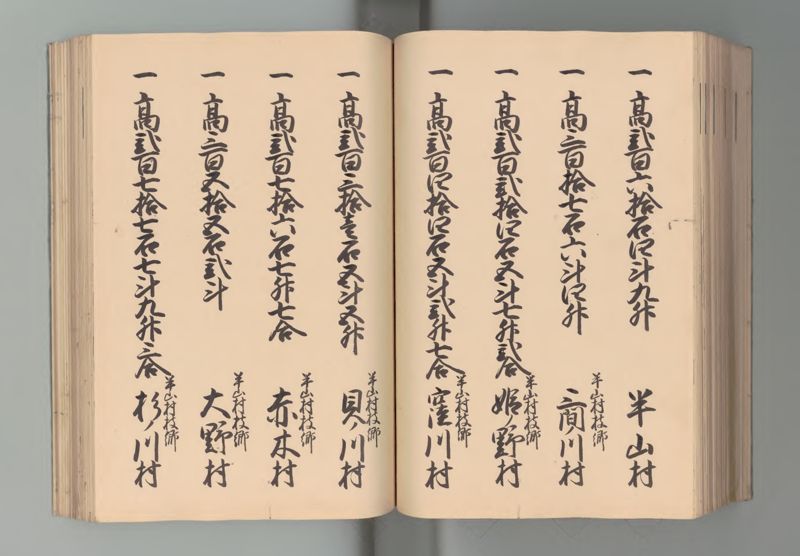 一高弐百六拾石四斗九升 半山村
一高三百拾七石六斗四升 半山村枝郷 三間川村
一高弐百弐拾四石五斗七升弐合 半山村枝郷 姫野村
一高弐百四拾四石五斗弐升七合 半山村枝郷 窪川村
一高弐百三拾壱石五斗五升 半山村枝郷 貝ノ川村
一高弐百七拾六石七升七合 半山村枝郷 赤木村
一高三百五拾五石弐斗 半山村枝郷 大野村
一高弐百七拾七石七斗九升三合 半山村枝郷 杉ノ川村